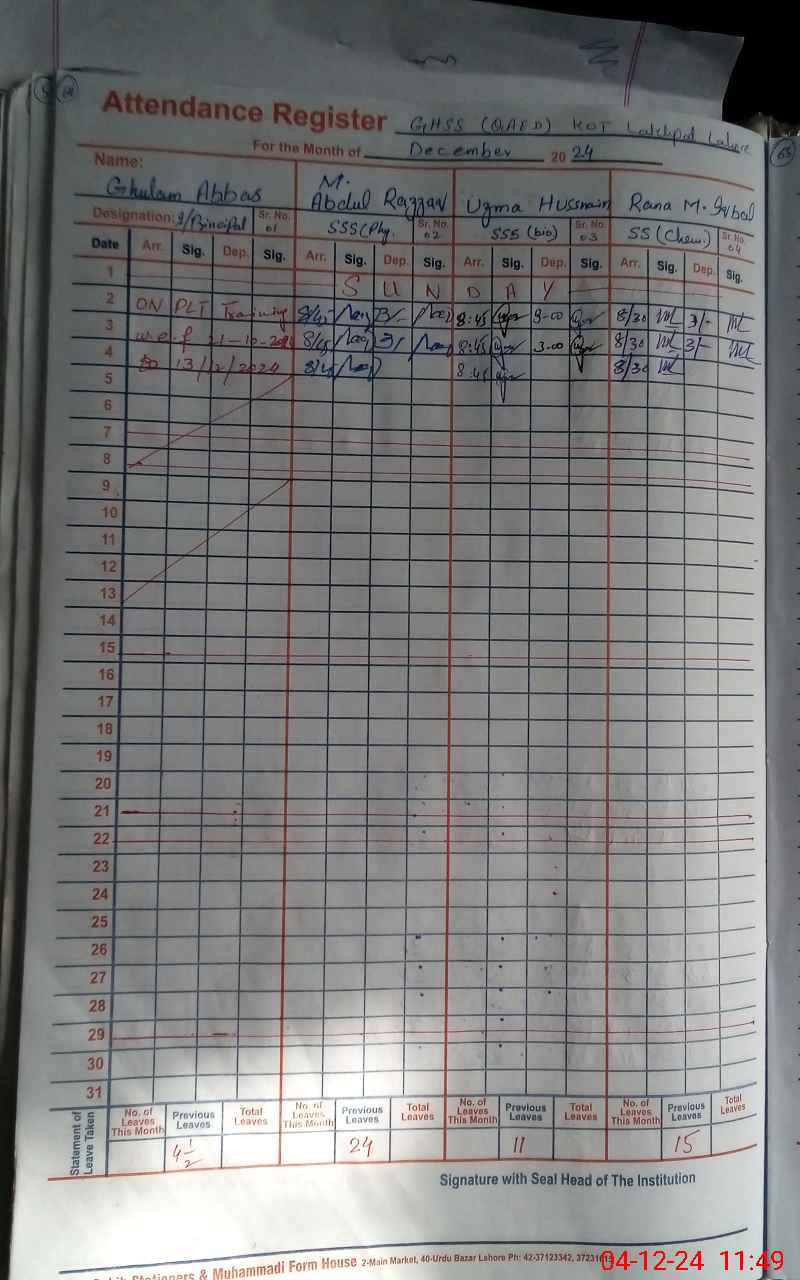 64
65
Attendance Register GHSS (QAED) KOT Lakhpat Lahore
For the Month of December 2024
Name:
Ghulam Abbas M. Abdul Razzaq Uzma Hussnain Rana M. Iqbal
Designation: I/Principal Sr. No. 01 SSS (Phy. Sr. No. 02 SSS (bio) Sr. No. 03 SS (Chem.) Sr. No. 04
Date Arr. Sig. Dep. Sig. Arr. Sig. Dep. Sig. Arr. Sig. Dep. Sig. Arr. Sig. Dep. Sig.
1 S U N D A Y
2 ON PLT Training 8/45 3/- 8:45 3-00 8/30 3/-
3 w.e.f 21-10-2024 8/45 3/ 8:45 3.00 8/30 3/-
4 to 13/12/2024 8/45 8:45 8/30
5
6
7
8
9
10
11
12
13
14
15
16
17
18
19
20
21
22
23
24
25
26
27
28
29
30
31
Statement of Leave Taken
No. of Leaves This Month Previous Leaves Total Leaves No. of Leaves This Month Previous Leaves Total Leaves No. of Leaves This Month Previous Leaves Total Leaves No. of Leaves This Month Previous Leaves Total Leaves
4 1/2 24 11 15
Signature with Seal Head of The Institution
Stationers & Muhammadi Form House 2-Main Market, 40-Urdu Bazar Lahore Ph: 42-37123342,
04-12-24 11:49